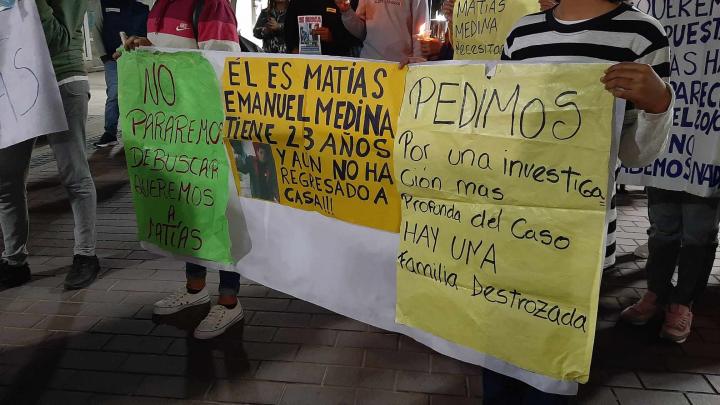 NO
PARAREMOS
DE BUSCAR
QUEREMOS
A
MATÍAS
ÉL ES MATÍAS
EMANUEL MEDINA
TIENE 23 AÑOS
Y AUN NO HA
REGRESADO A
CASA!!!
PEDIMOS
Por una investiga
ción mas
Profunda del Caso
HAY UNA
Familia Destrozada
MATÍAS
MEDINA
Necesitas
QUEREM